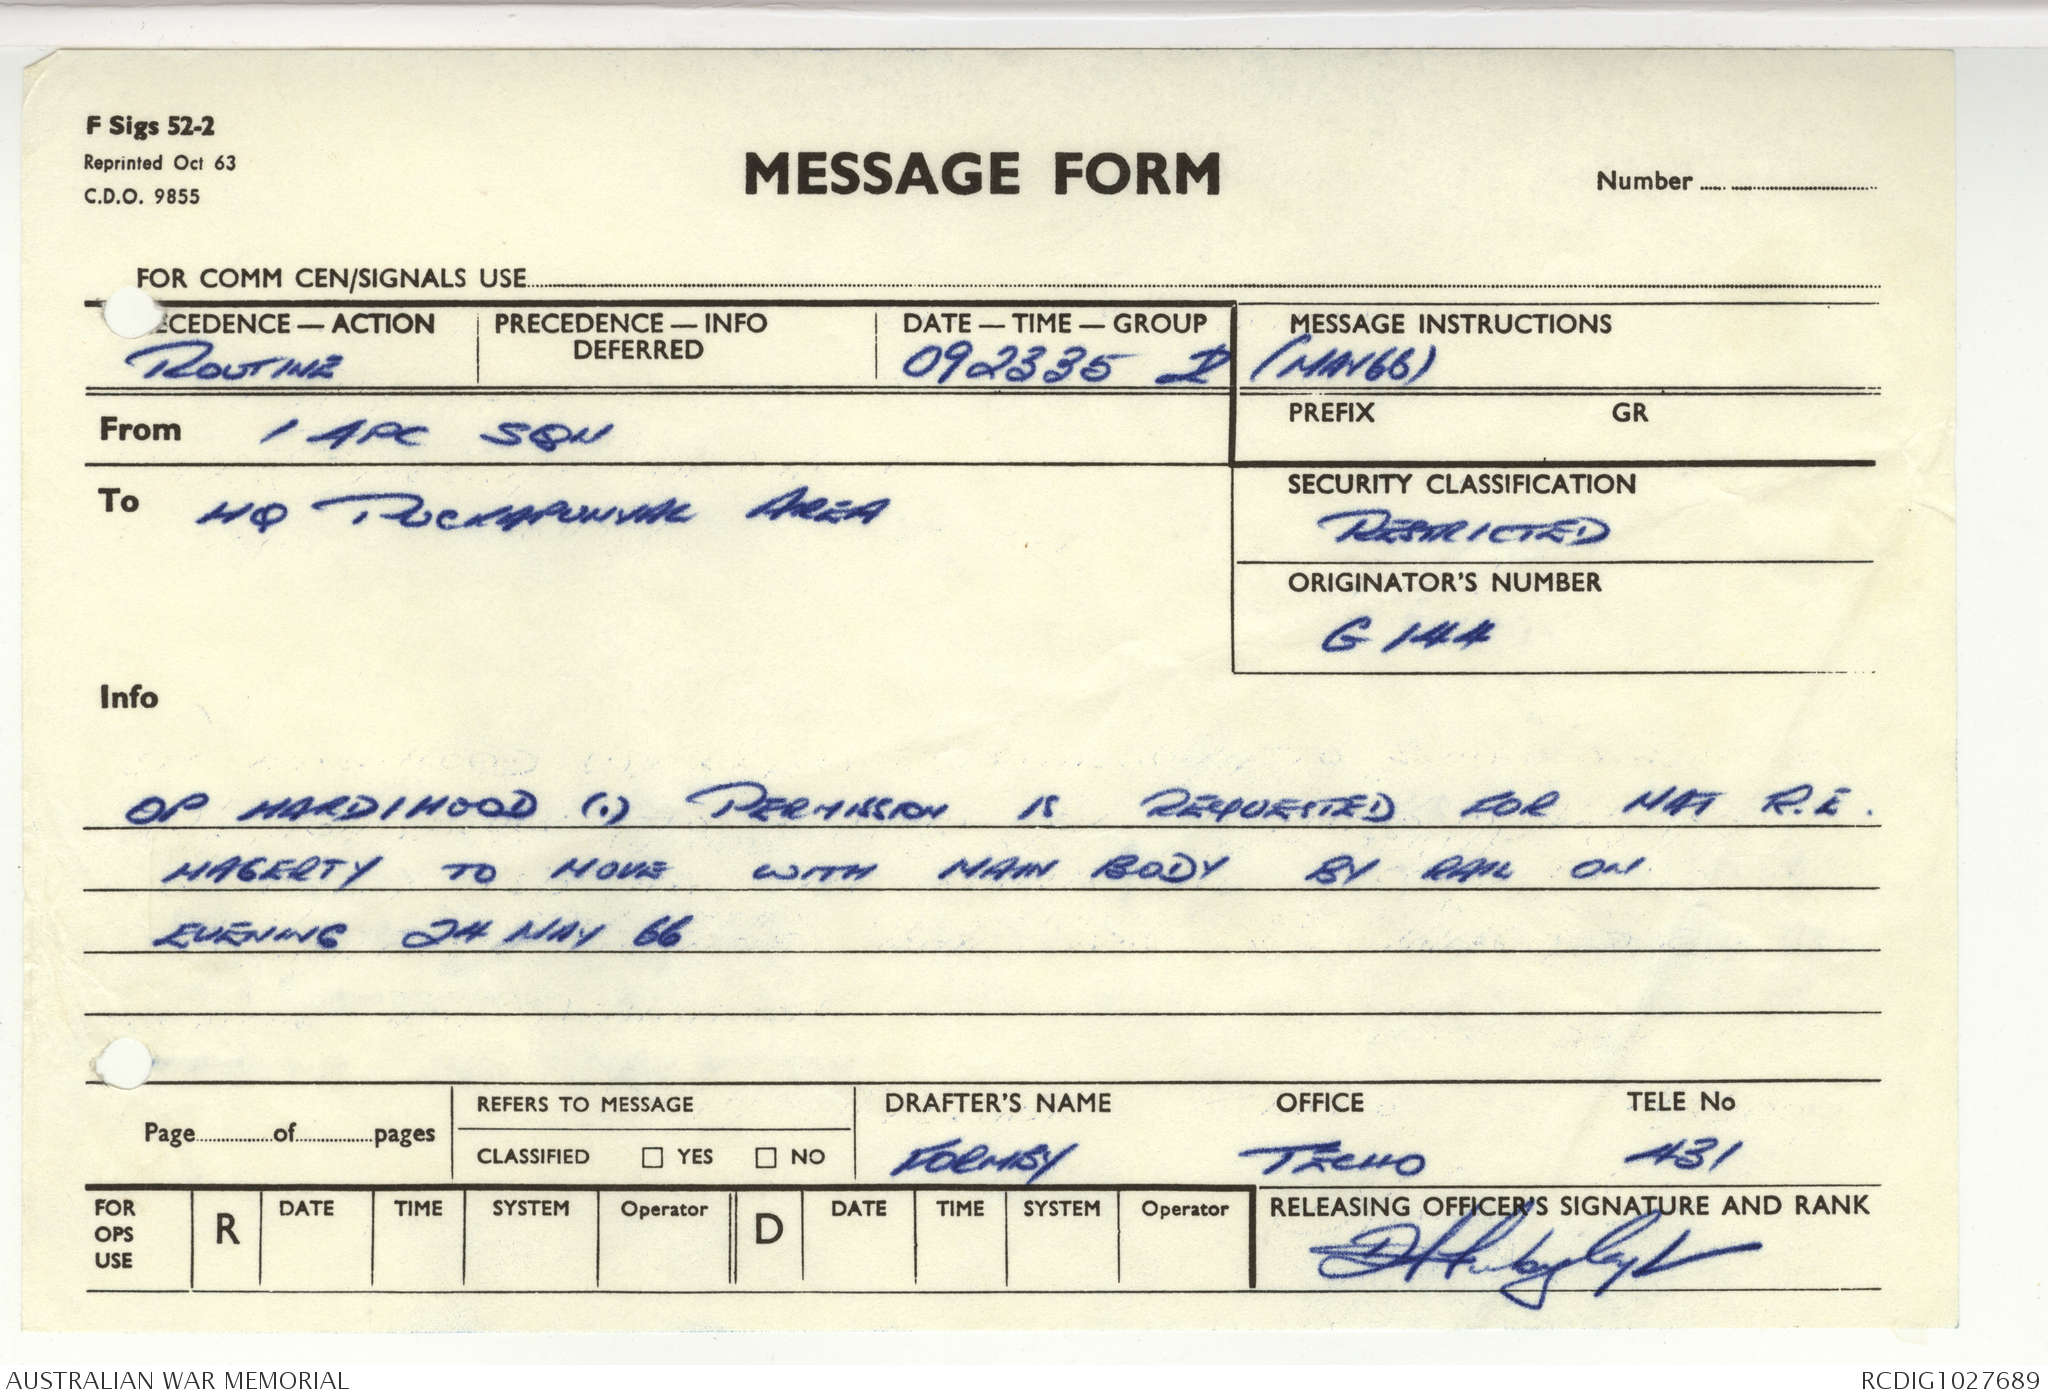 F Sigs 52-2
Reprinted Oct 63
C.D.O. 9855
MESSAGE FORM
Number
FOR COMM CEN/SIGNALS USE
ECEDENCE — ACTION
ROUTINE
PRECEDENCE — INFO
DEFERRED
DATE — TIME — GROUP
092335 Z
MESSAGE INSTRUCTIONS
(MAY66)
PREFIX GR
From 1 APC SQN
To HQ PUCKAPUNYAL AREA
SECURITY CLASSIFICATION
RESTRICTED
ORIGINATOR'S NUMBER
G 144
Info
OP HARDIHOOD (.) PERMISSION IS REQUESTED FOR MAJ R.E.
HAGERTY TO MOVE WITH MAIN BODY BY RAIL ON
EVENING 24 MAY 66
Page of pages
REFERS TO MESSAGE
CLASSIFIED YES NO
DRAFTER'S NAME OFFICE TELE No
FORMBY TECHO 431
FOR
OPS
USE
R DATE TIME SYSTEM Operator D DATE TIME SYSTEM Operator
RELEASING OFFICER'S SIGNATURE AND RANK
AUSTRALIAN WAR MEMORIAL
RCDIG1027689